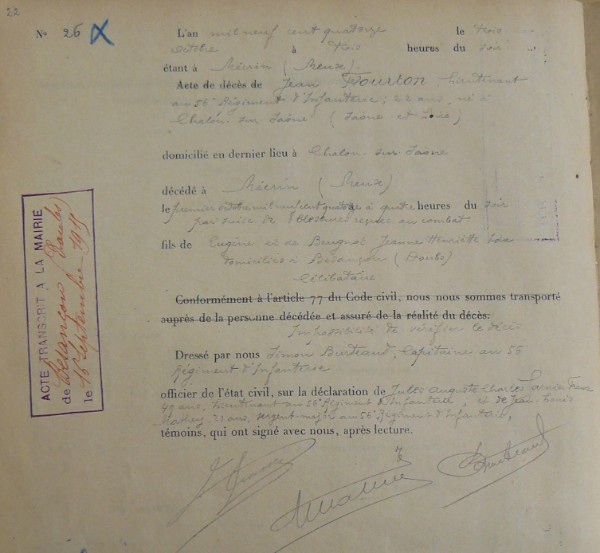 22
N° 26 X L'an mil neuf cent quatorze le trois
octobre à trois heures du soir
étant à Mécrin (Meuse).
Acte de décès de Jean Fourton, Lieutenant
au 56e Régiment d'Infanterie; 22 ans, né à
Chalon-sur-Saône (Saône et Loire)
domicilié en dernier lieu à Chalon-sur-Saône
décédé à Mécrin (Meuse)
le premier octobre mil neuf cent quatorze à quatre heures du soir
par suite de blessures reçues au combat
fils de Eugène et de Jeanne Henriette
domiciliés à Besançon (Doubs)
Célibataire
Conformément à l'article 77 du Code civil, nous nous sommes transporté
auprès de la personne décédée et assuré de la réalité du décès:
Impossibilité de vérifier le décès
Dressé par nous Simon Bertrand, Capitaine au 56
Régiment d'Infanterie
officier de l'état civil, sur la déclaration de Jules Auguste Charles
49 ans, Lieutenant au 56e Régiment d'Infanterie et de Jean
21 ans, sergent-major au 56e Régiment d'Infanterie,
témoins, qui ont signé avec nous, après lecture.
ACTE TRANSCRIT A LA MAIRIE
de Besançon (Doubs)
le 16 septembre